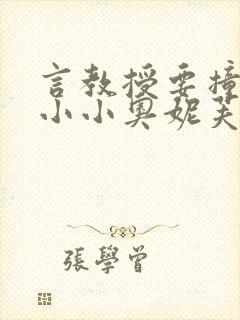 言教授要撞
小小奥妮芙
張學曾